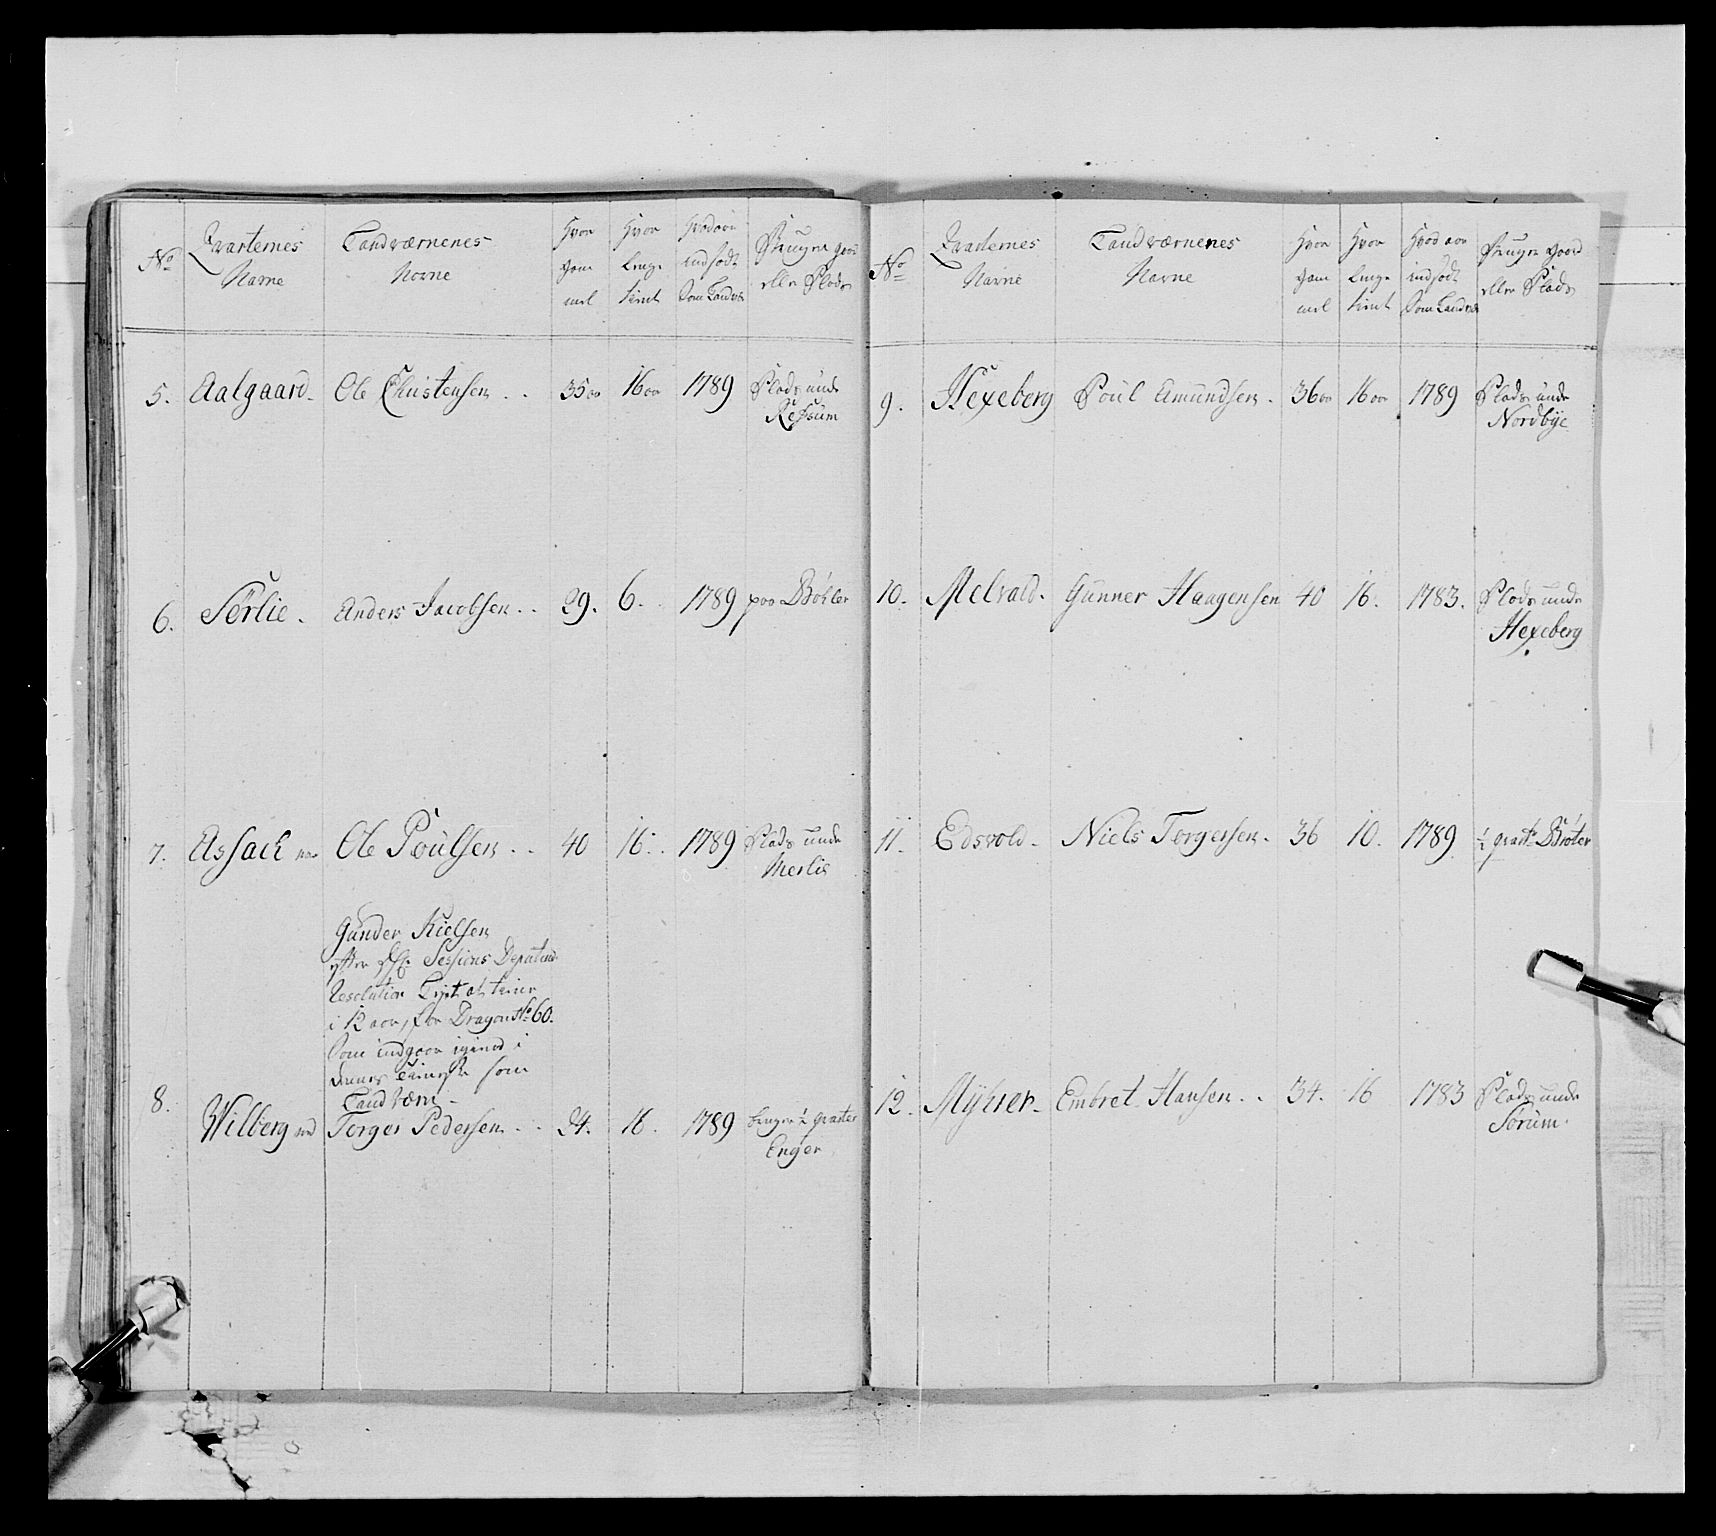 No
Qvarternes
Navne
Landværnenes
Navne
Hvor
gam
mel
Hvor
lenge
tient
Hvad aar
indført
Som Landv:
Bruger gaar
eller Plads
5.
Aalgaard.
Ole Christensen . .
35 aar
16 aar
1789
Plads unde
Refsum
6.
Sørlie.
Anders Jacobsen . .
29.
6.
1789
paa Bøhler
7.
Assach
Ole Poulsen . .
40
16.
1789
Plads unde
Merlie
8.
Gunder Kielsen
efter Sessions Deputerede
Resolution at tiene
i 12 aar, for Dragon No 60.
Som indgaar igien i
dennes tieneste som
Landværn.
Wilberg
Torger Pedersen . .
24.
16.
1789
bruger ½ qvarter
Enger
No
Qvarternes
Navne
Landværnenes
Navne
Hvor
gam
mel
Hvor
lenge
tient
Hvad aar
indført
Som Landvæ
Bruger gaard
eller Plads
9.
Hexeberg
Poul Amundsen.
36 aar
16 aar
1789
Plads unde
Nordbye
10.
Melvald.
Gunner Haagensen
40
16.
1783.
Plads unde
Hexeberg
11.
Edsvold.
Niels Torgersen.
36
10.
1789
Brøter
12.
Myhrer.
Embret Hansen . .
34.
16
1783
Plads unde
Sørum.